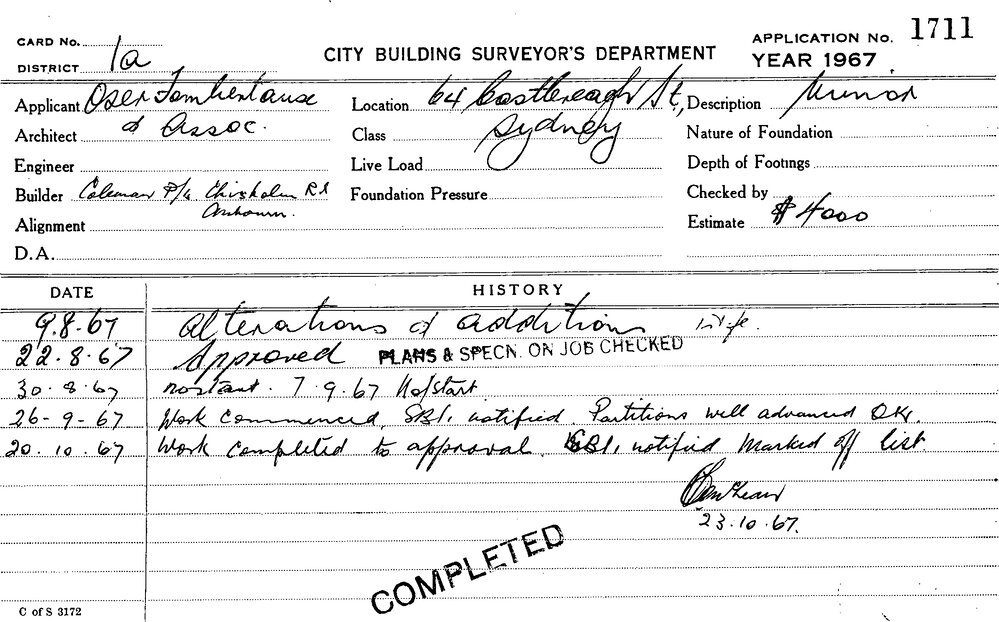 CARD No.
DISTRICT 1a
CITY BUILDING SURVEYOR'S DEPARTMENT
APPLICATION No. 1711
YEAR 1967
Applicant Oser Fombertaux
Architect & Assoc.
Engineer
Builder Coleman P/L Chisholm Rd
Auburn.
Alignment
D.A.
Location 64 Castlereagh St,
Class Sydney
Live Load
Foundation Pressure
Description Minor
Nature of Foundation
Depth of Footings
Checked by
Estimate $4000
DATE HISTORY
9.8.67 Alterations & additions
22.8.67 Approved PLANS & SPECN. ON JOB CHECKED
30.8.67 no start. 7.9.67 No start
26-9-67 Work commenced, SBI, notified Partitions well advanced OK.
20.10.67 Work completed to approval. SBI, notified Marked off list.
23.10.67.
COMPLETED
C of S 3172